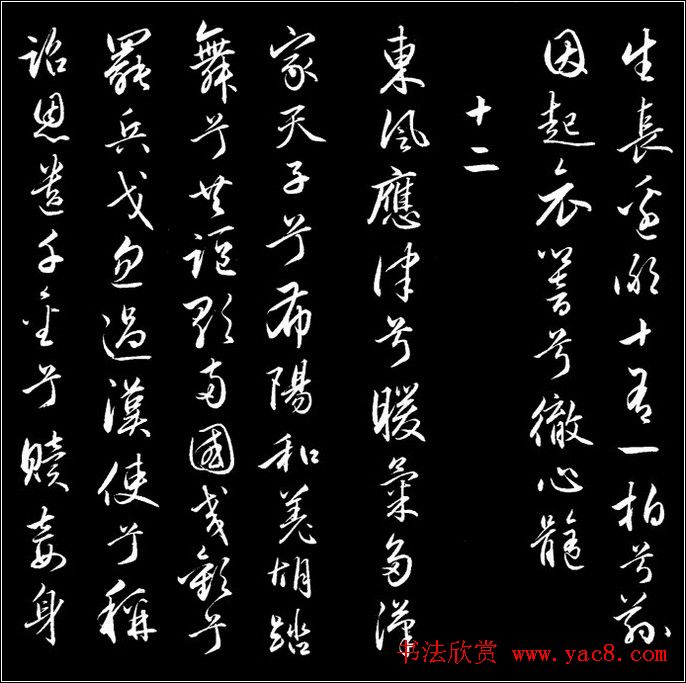 生長邊鄙十有一拍兮茲
因起哀響兮徹心髓
十二
東風應律兮暖氣多漢
家天子兮布陽和羌胡踏
舞兮共謳歌兩國交歡兮
罷兵戈忽遇漢使兮稱
詔恩遺千金兮贖妾身
书法欣赏 www.yac8.com